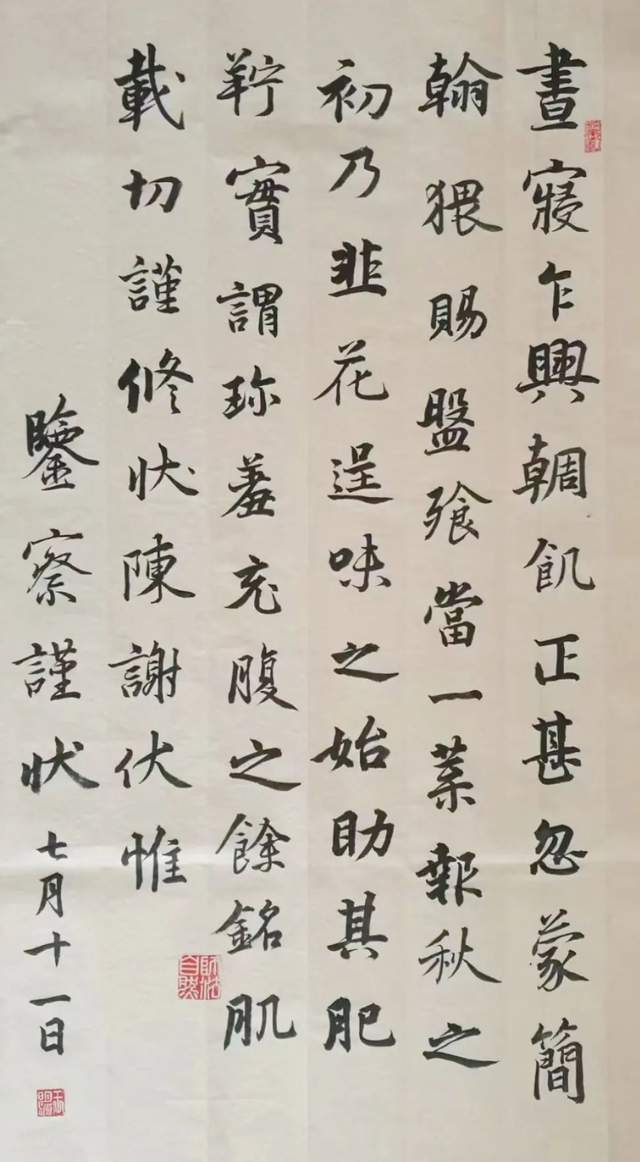 晝寢乍興輖飢正甚忽蒙簡
翰猥賜盤飧當一葉報秋之
初乃韭花逞味之始助其肥
羜實謂珍羞充腹之餘銘肌
載切謹修狀陳謝伏惟
鑒察謹狀七月十一日
師法自然